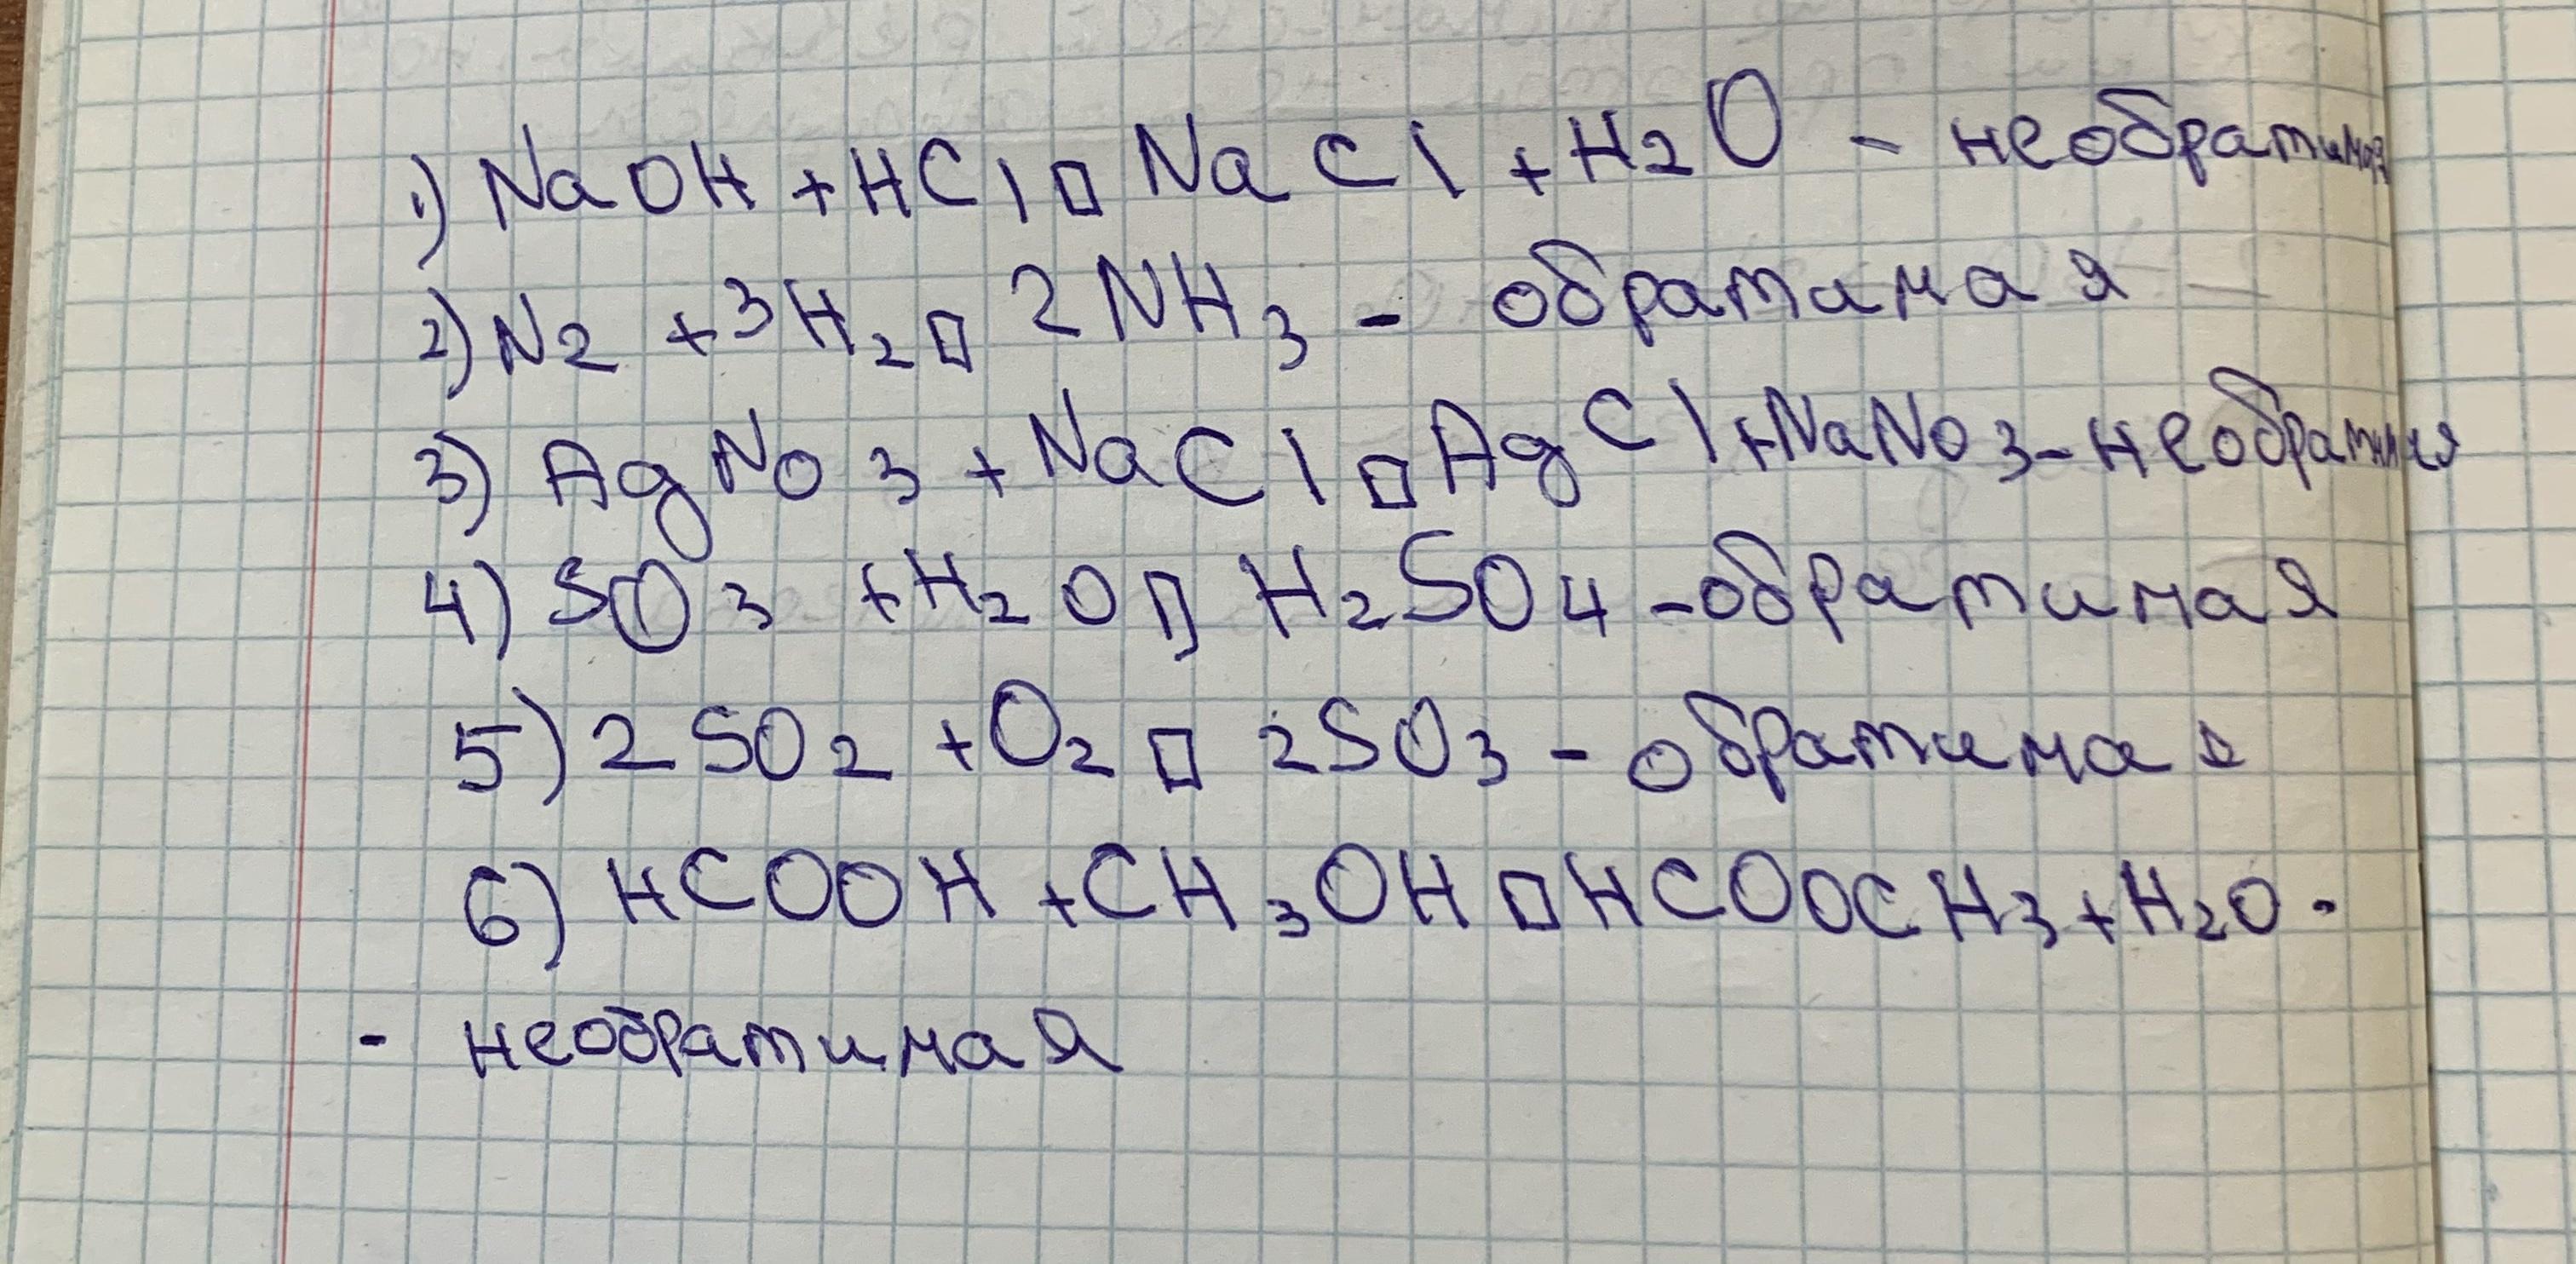 1) NaOH + HCl □ NaCl + H2O - необратимая
2) N2 + 3H2 □ 2NH3 - обратимая
3) AgNo3 + NaCl □ AgCl + NaNo3 - необратимая
4) SO3 + H2O □ H2SO4 - обратимая
5) 2SO2 + O2 □ 2SO3 - обратимая
6) HCOOH + CH3OH □ HCOOCH3 + H2O -
- необратимая